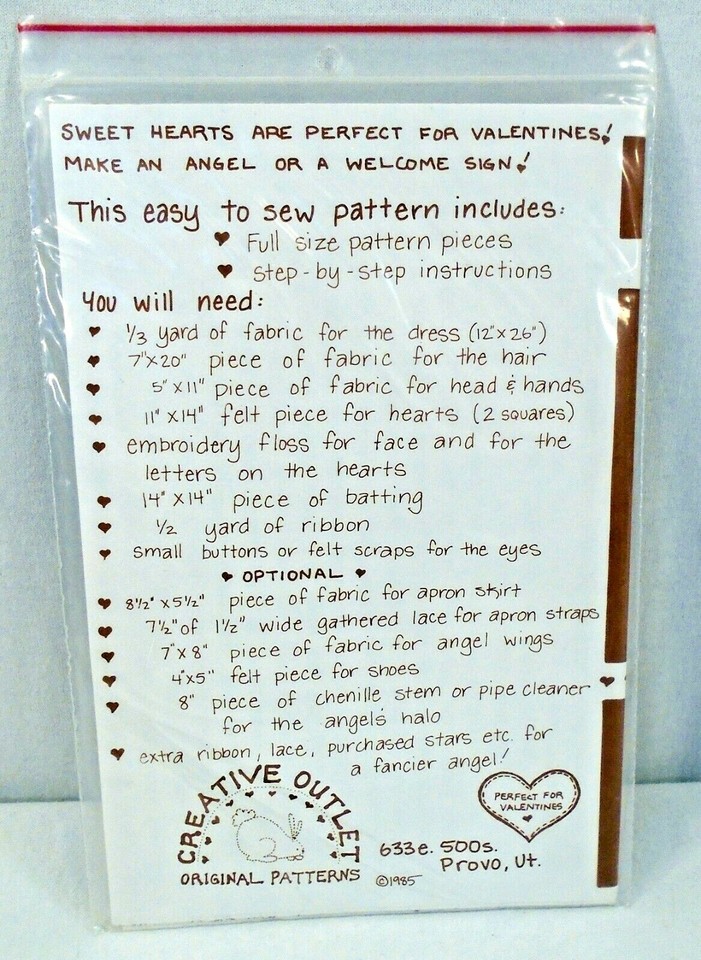 SWEET HEARTS ARE PERFECT FOR VALENTINES!
MAKE AN ANGEL OR A WELCOME SIGN!
This easy to sew pattern includes:
♥ Full size pattern pieces
♥ step-by-step instructions
You will need:
♥ 1/3 yard of fabric for the dress (12"x26")
♥ 7"X20" piece of fabric for the hair
♥ 5"X11" piece of fabric for head & hands
♥ 11"X14" felt piece for hearts (2 squares)
♥ embroidery floss for face and for the
letters on the hearts
♥ 14"X14" piece of batting
♥ 1/2 yard of ribbon
♥ small buttons or felt scraps for the eyes
♥ OPTIONAL ♥
♥ 8½"x5½" piece of fabric for apron skirt
♥ 7½" of 1½" wide gathered lace for apron straps
♥ 7"x8" piece of fabric for angel wings
♥ 4"x5" felt piece for shoes
♥ 8" piece of chenille stem or pipe cleaner
for the angel's halo
♥ extra ribbon, lace, purchased stars etc. for
a fancier angel!
CREATIVE OUTLET
ORIGINAL PATTERNS
©1985
633e. 500s.
Provo, Ut.
PERFECT FOR
VALENTINES